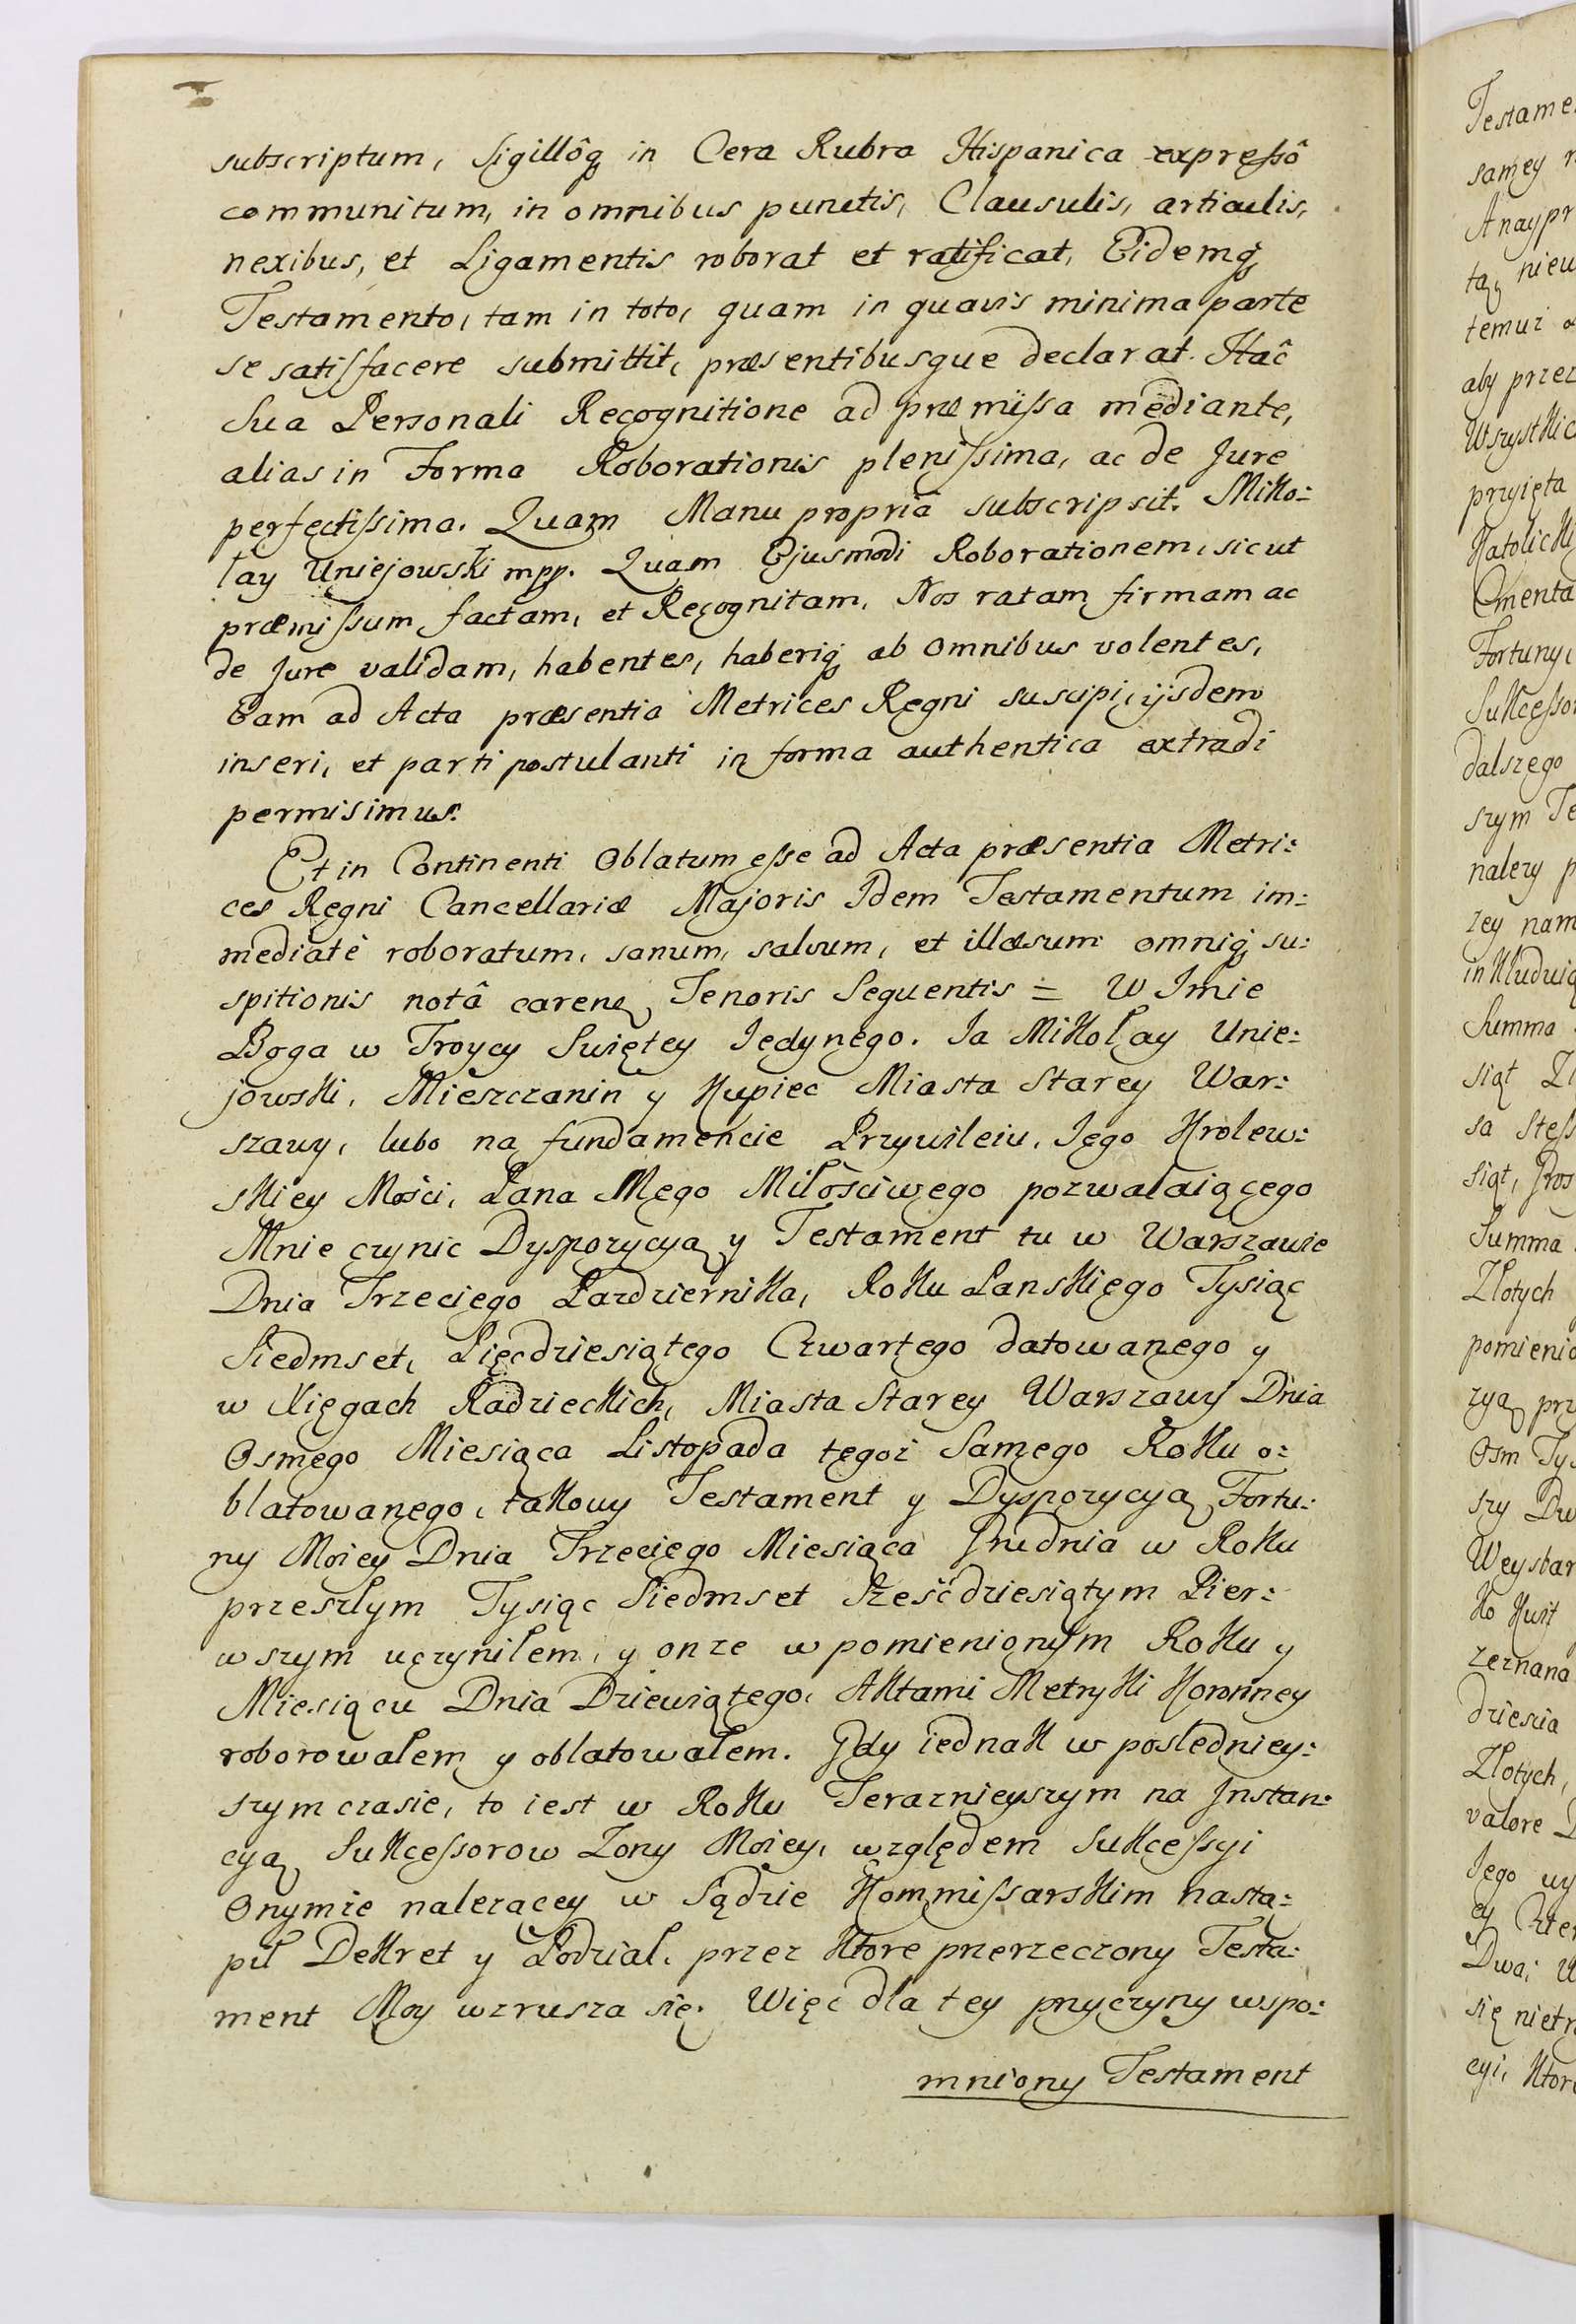 subscriptum, Sigillôq in Cera Rubra Hispanica expreſsô
communitum, in omnibus punctis, Clausulis, articulis,
nexibus, et Ligamentis roborat et ratificat, Eidemq
Testamento, tam in toto, quam in quavis minima parte
se satisfacere submittit, præsentibusque declarat. Hac̑
Sua Personali Recognitione ad præmiſsa mediante,
alias in Forma Roborationis pleniſsima, ac de Jure
perfectiſsima. Quam Manu propria subscripsit. Miko:
łay Uniejowski mpp. Quam Ejusmodi Roborationem, sicut
præmiſsum factam, et Recognitam, Nos ratam firmam ac
de Jure validam, habentes, haberiq ab omnibus volentes,
Eam ad Acta præsentia Metrices Regni suscipi, ijsdem
inseri, et parti postulanti in forma authentica extradi
permisimus.
Et in Continenti Oblatum eſse ad Acta præsentia Metri:
ces Regni Cancellariæ Majoris Idem Testamentum im:
mediatè roboratum, sanum, salvum, et illæsum omniq su:
spitionis notâ careno, Tenoris Sequentis = W Imie
Boga w Troycy Swiętey Jedynego. Ja Mikołay Unie:
jowski, Mieszczanin y Kupiec Miasta Starey War:
szawy, lubo na fundamencie Przywileiu, Jego Krolew:
skiey Mości, Pana Mego Miłościwego pozwalaiącego
Mnie czynic Dyspozycyą y Testament tu w Warszawie
Dnia Trzeciego Pazdziernika, Roku Panskiego Tysiąc
Siedmset, Pięcdziesiątego Czwartego datowanego y
w Xięgach Radzieckich, Miasta Starey Warszawy Dnia
Osmego Miesiąca Listopada tegoż Samego Roku o:
blatowanego, takowy Testament y Dyspozycyą Fortu:
ny Moiey Dnia Trzeciego Miesiąca Grudnia w Roku
przeszłym Tysiąc Siedmset Sześćdziesiątym Pier:
wszym uczynilem, y onze w pomienionym Roku y
Miesiącu Dnia Dziewiątego, Aktami Metryki Koronney
roborowałem y oblatowałem. Gdy iednak w posledniey:
szym czasie, to iest w Roku Teraznieyszym na Instan:
cyą Sukceſsorow Zony Moiey, względem Sukceſsyi
Onymże nalezącey w Sądzie Kommiſsarskim nastą:
pił Dekret y Podział, przez ktore przerzeczony Testa:
ment Moy wzrusza się. Więc dla tey przyczyny wspo:
mniony Testament